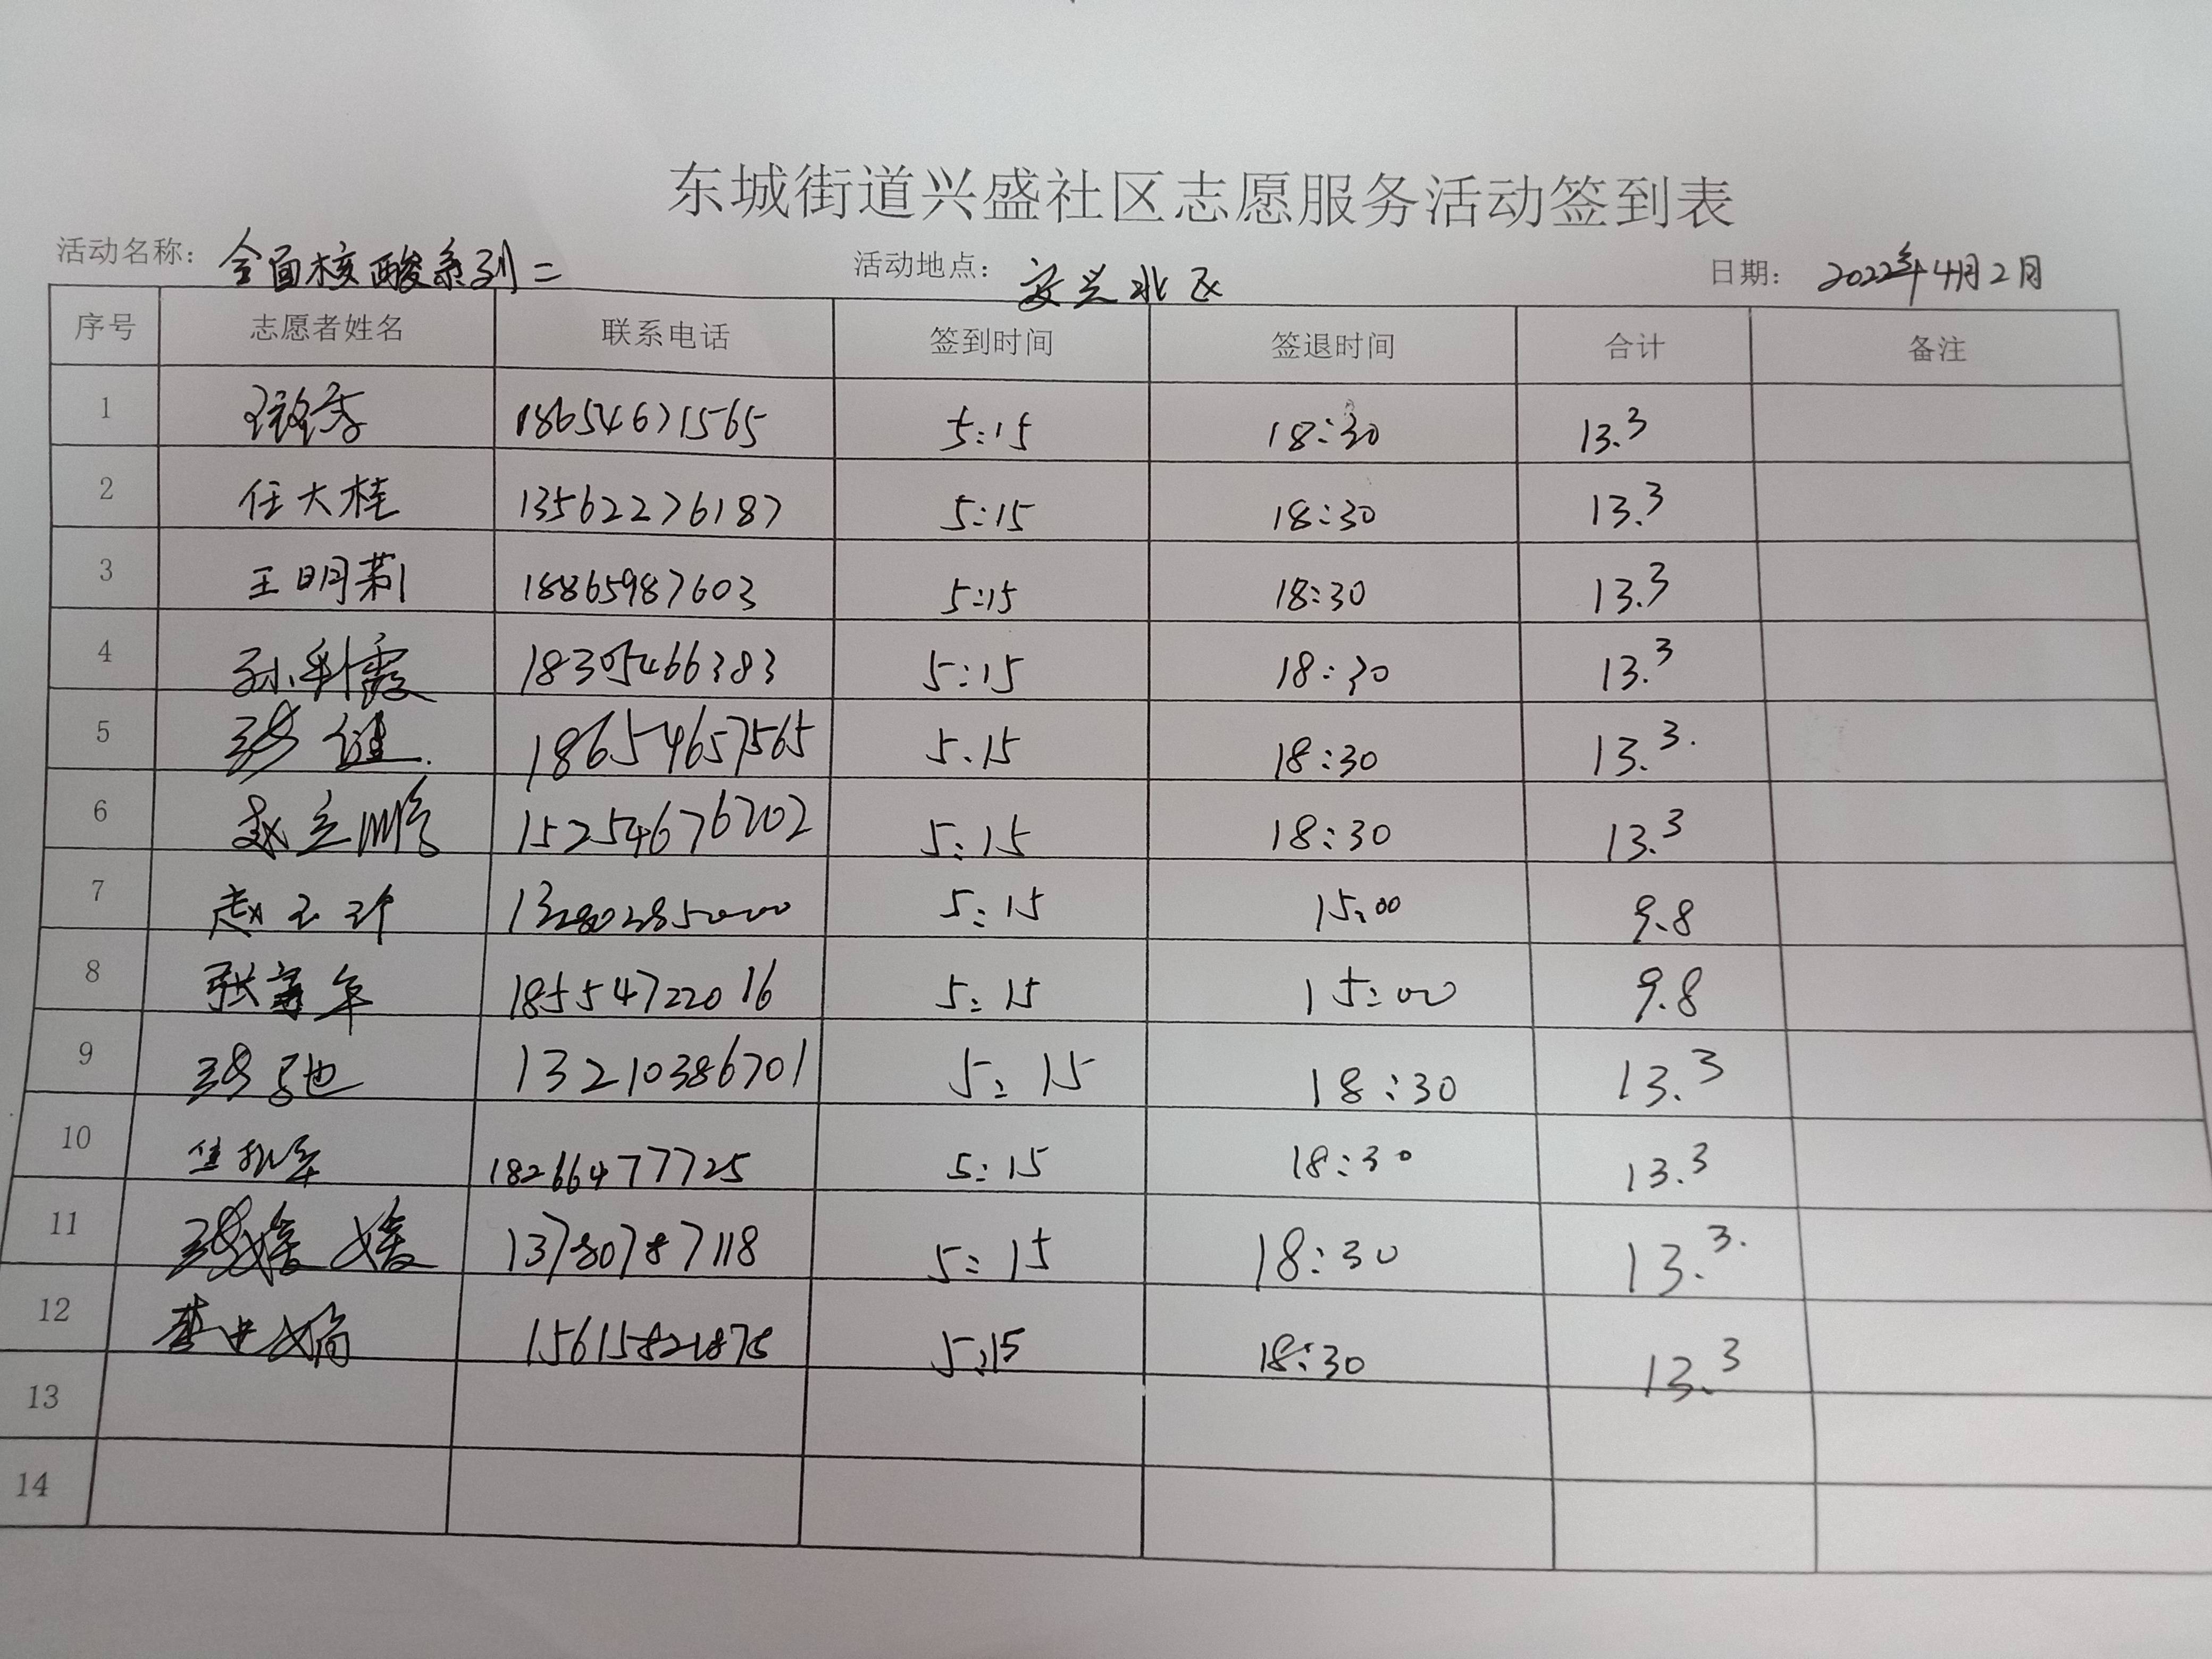 东城街道兴盛社区志愿服务活动签到表
活动名称： 全面核酸系列二 活动地点： 安兴北区 日期： 2022年4月2日
序号 志愿者姓名 联系电话 签到时间 签退时间 合计 备注
1 18654671565 5:15 18:30 13.3
2 任大桂 13562276187 5:15 18:30 13.3
3 王明莉 18865987603 5:15 18:30 13.3
4 孙利霞 18305466383 5:15 18:30 13.3
5 健 18654657565 5.15 18:30 13.3
6 赵立顺 15254676702 5:15 18:30 13.3
7 赵玉珍 13280285000 5:15 15:00 9.8
8 张富军 18554722016 5:15 15:00 9.8
9 13210386701 5:15 18:30 13.3
10 18266477725 5:15 18:30 13.3
11 13780787118 5:15 18:30 13.3
12 15615821878 5:15 18:30 13.3
13
14